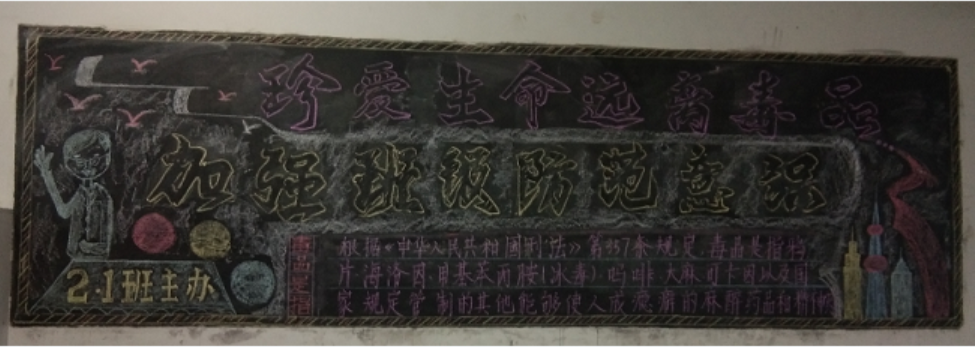 珍爱生命远离毒品
加强班级防范意识
2.1班主办
毒品是指
根据《中华人民共和国刑法》第357条规定,毒品是指鸦
片、海洛因、甲基苯丙胺(冰毒)、吗啡、大麻、可卡因以及国
家规定管制的其他能够使人成瘾癖的麻醉药品和精神